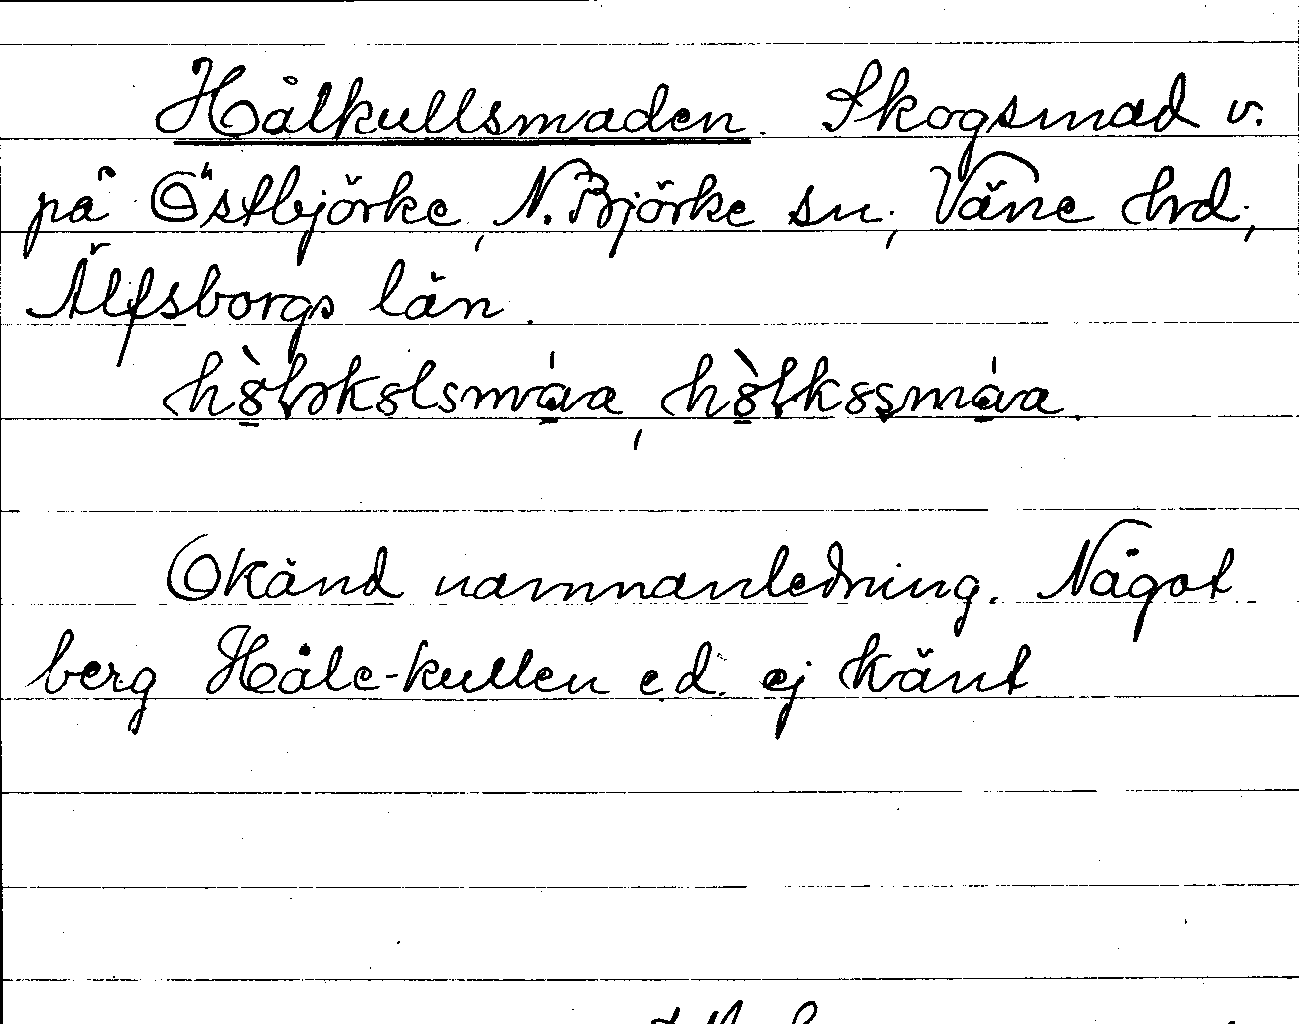 Hålkullsmaden. Skogsmad v.
på Östbjörke, N. Björke sn, Väne hrd,
Älfsborgs län.
Okänd namnanledning. Något
berg Håle-kullen e.d. ej känt